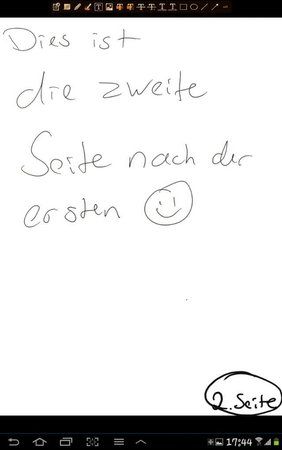 Dies ist
die zweite
Seite nach der
ersten
2. Seite
17:44